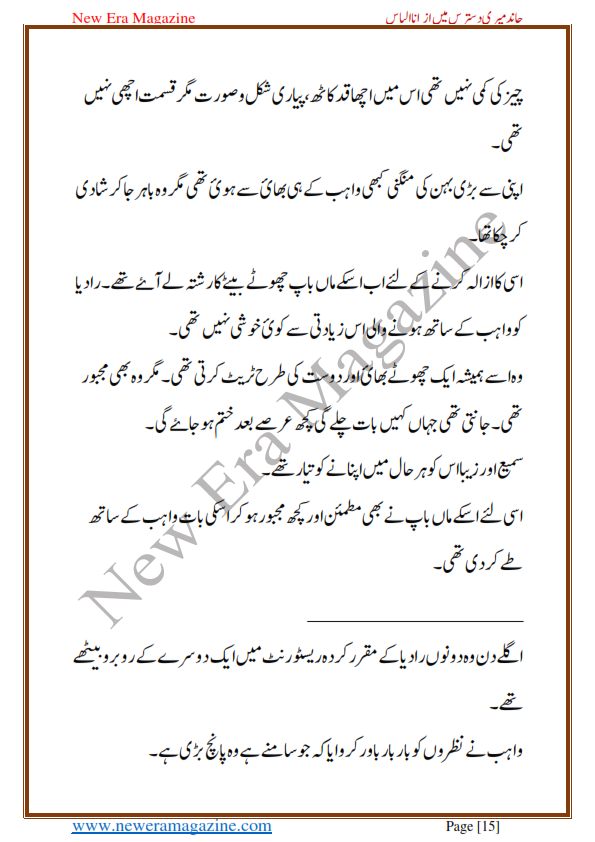 New Era Magazine
چاند میری دسترس میں از انا الیاس
چیز کی کمی نہیں تھی اس میں اچھا قد کاٹھ، پیاری شکل و صورت مگر قسمت اچھی نہیں
تھی۔
اپنی سے بڑی بہن کی منگنی کبھی واہب کے ہی بھائ سے ہوئ تھی مگر وہ باہر جا کر شادی
کر چکا تھا۔
اسی کا ازالہ کرنے کے لئے اب اسکے ماں باپ چھوٹے بیٹے کا رشتہ لے آۓ تھے۔ رادیا
کو واہب کے ساتھ ہونے والی اس زیادتی سے کوئ خوشی نہیں تھی۔
وہ اسے ہمیشہ ایک چھوٹے بھائ اور دوست کی طرح ٹریٹ کرتی تھی۔ مگر وہ بھی مجبور
تھی۔ جانتی تھی جہاں کہیں بات چلے گی کچھ عرصے بعد ختم ہو جاۓ گی۔
سمیع اور زیبا اس کو ہر حال میں اپنانے کو تیار تھے۔
اسی لئے اسکے ماں باپ نے بھی مطمئن اور کچھ مجبور ہو کر اسکی بات واہب کے ساتھ
طے کر دی تھی۔
اگلے دن وہ دونوں رادیا کے مقرر کردہ ریسٹورنٹ میں ایک دوسرے کے روبرو بیٹھے
تھے۔
واہب نے نظروں کو بار بار باور کروایا کہ جو سامنے ہے وہ پانچ بڑی ہے۔
New Era Magazine
www.neweramagazine.com
Page [15]